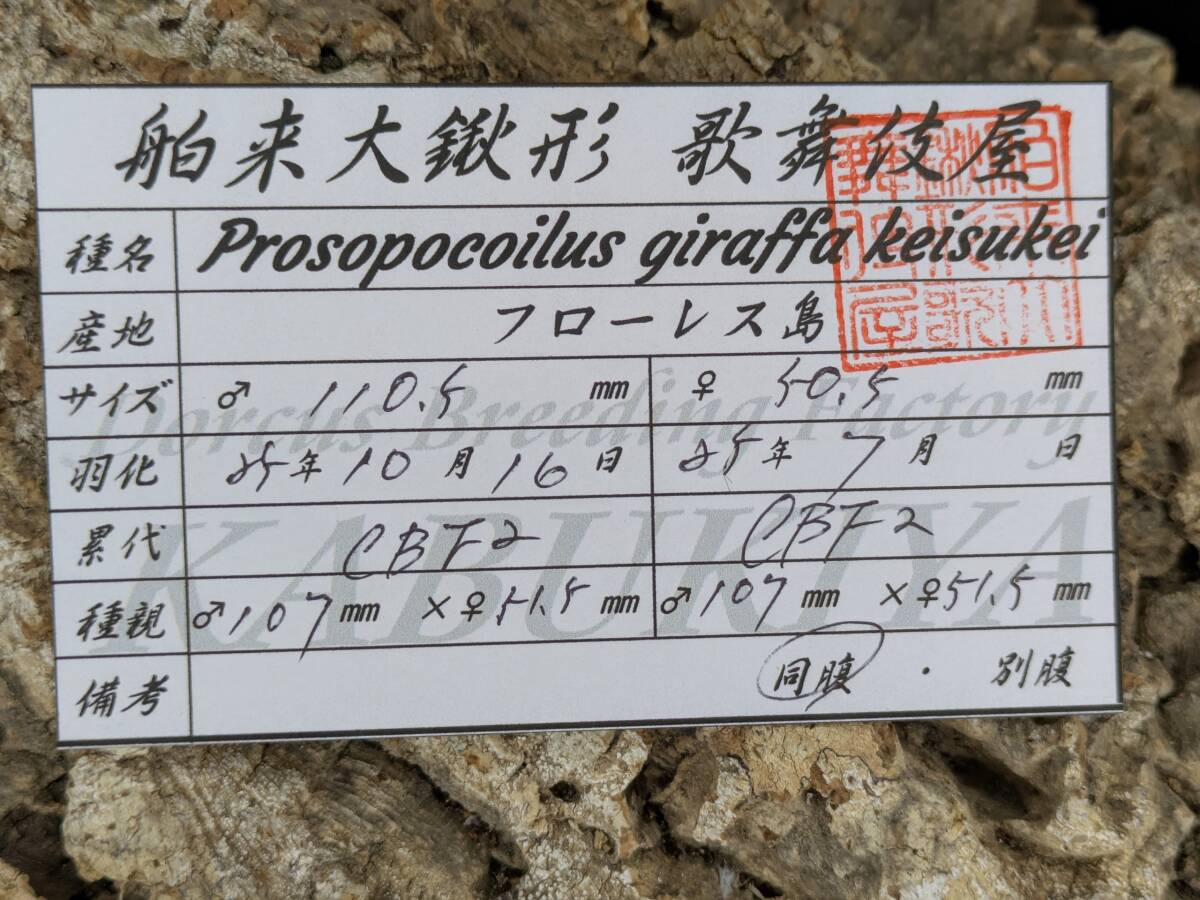 舶来大鍬形 歌舞伎屋
種名 Prosopocoilus giraffa keisukei
産地 フローレス島
サイズ ♂ 110.5 mm ♀ 50.5 mm
羽化 25年10月16日 25年7月 日
累代 CBF2 CBF2
種親 ♂107mm ×♀51.5mm ♂107mm ×♀51.5mm
備考 同腹 ・ 別腹
Dorcus Breeding Factory
KABUKIYA